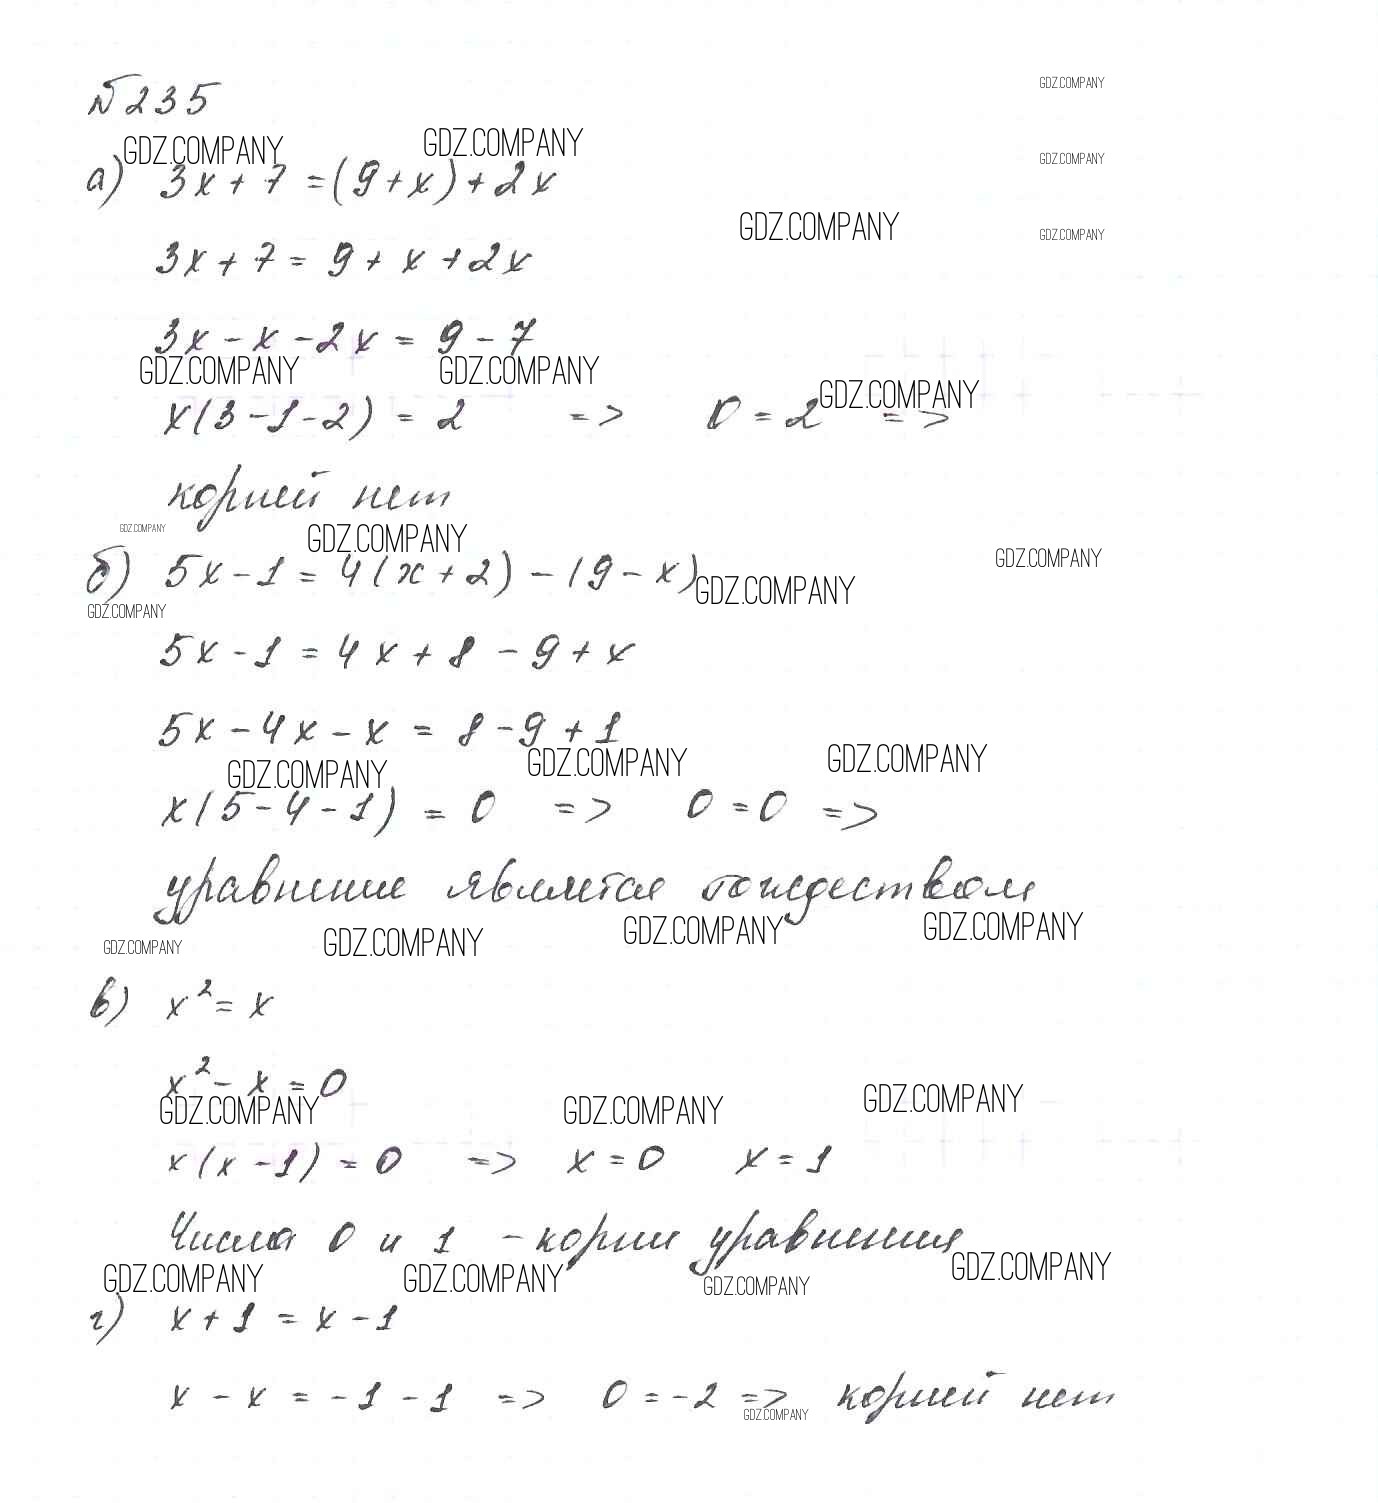 №235
GDZ.COMPANY
GDZ.COMPANY GDZ.COMPANY
а) 3x + 7 = (9 + x) + 2x
GDZ.COMPANY
GDZ.COMPANY GDZ.COMPANY
3x + 7 = 9 + x + 2x
3x - x - 2x = 9 - 7
GDZ.COMPANY GDZ.COMPANY GDZ.COMPANY
x(3 - 1 - 2) = 2 => 0 = 2 =>
корней нет
GDZ.COMPANY GDZ.COMPANY GDZ.COMPANY
б) 5x - 1 = 4(x + 2) - (9 - x)
GDZ.COMPANY GDZ.COMPANY
5x - 1 = 4x + 8 - 9 + x
5x - 4x - x = 8 - 9 + 1
GDZ.COMPANY GDZ.COMPANY GDZ.COMPANY
x(5 - 4 - 1) = 0 => 0 = 0 =>
уравнение является тождеством
GDZ.COMPANY GDZ.COMPANY GDZ.COMPANY GDZ.COMPANY
в) x² = x
x² - x = 0
GDZ.COMPANY GDZ.COMPANY GDZ.COMPANY
x(x - 1) = 0 => x = 0 x = 1
Числа 0 и 1 - корни уравнения
GDZ.COMPANY GDZ.COMPANY GDZ.COMPANY GDZ.COMPANY
г) x + 1 = x - 1
x - x = -1 - 1 => 0 = -2 => корней нет
GDZ.COMPANY